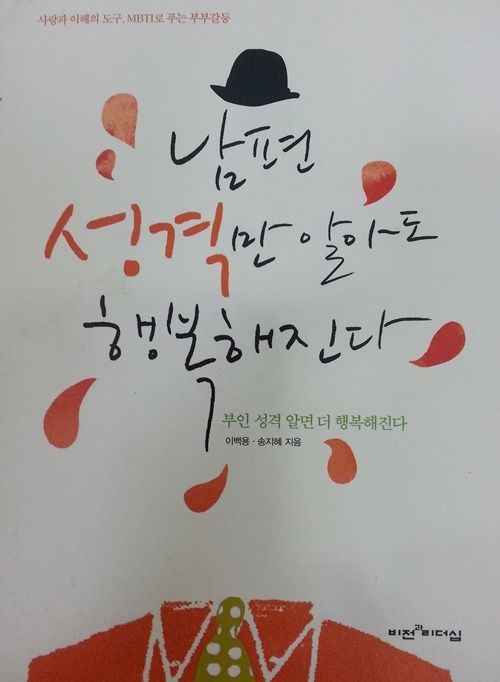 사랑과 이해의 도구, MBTI로 푸는 부부갈등
남편
성격만 알아도
행복해진다
부인 성격 알면 더 행복해진다
이백용 · 송지혜 지음
비전과리더십